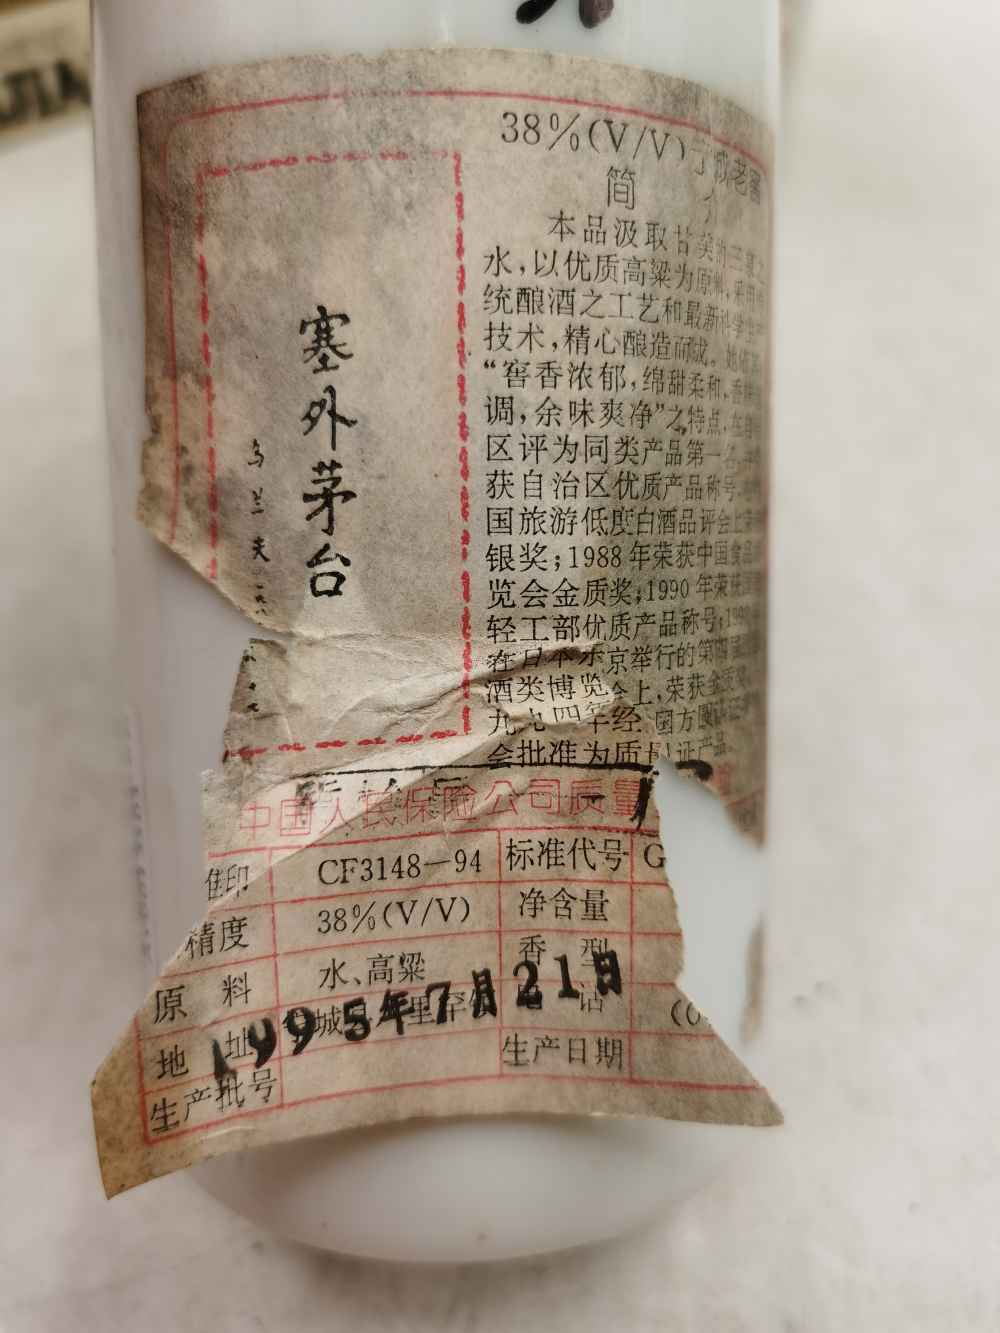 塞外茅台
乌兰夫
38%(V/V)宁城老窖
简介
本品汲取甘美的三泉之
水,以优质高粱为原料,采用
统酿酒之工艺和最新科学
技术,精心酿造而成。她
“窖香浓郁,绵甜柔和,香
调,余味爽净”之特点,在自
区评为同类产品第一名,
获自治区优质产品称号,
国旅游低度白酒品评会上
银奖;1988年荣获中国食品
览会金质奖;1990年荣获
轻工部优质产品称号;199
在日本东京举行的第四届
酒类博览会上,荣获金
九九四年经国方圆
会批准为质量认证产品
中国人民保险公司质量
准印 CF3148—94 标准代号 G
精度 38%(V/V) 净含量
原料 水、高粱 香型
地址 城 八里罕 电话 (0
1995年7月21日
生产批号 生产日期